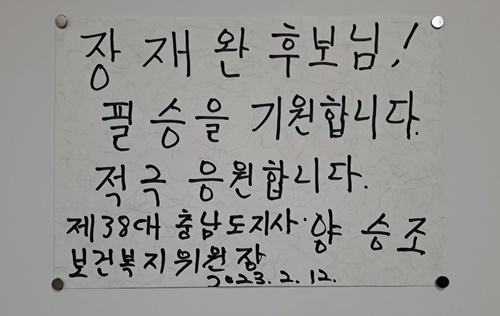 장재완 후보님!
필승을 기원합니다.
적극 응원합니다.
제38대 충남도지사· 양승조
보건복지위원장
2023. 2. 12.